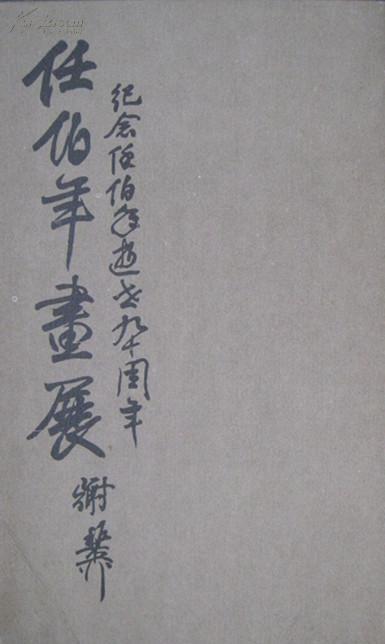 紀念任伯年逝世九十周年
任伯年畫展
謝